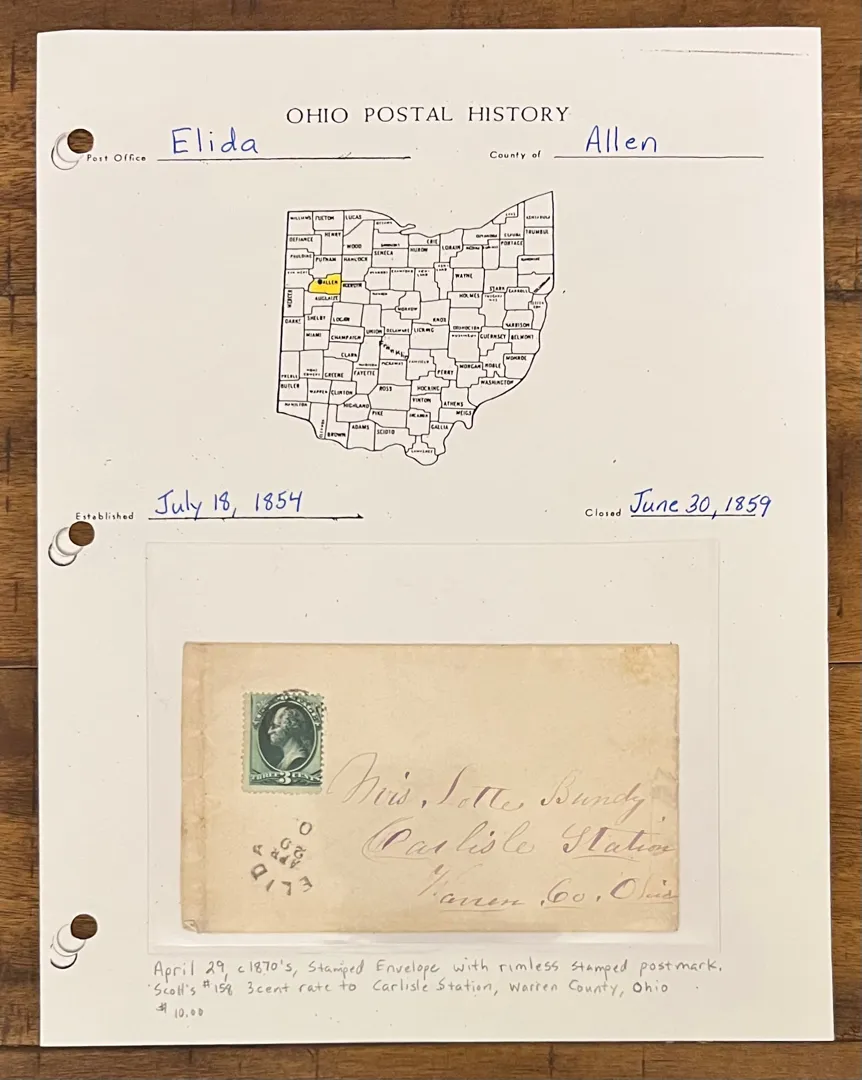 OHIO POSTAL HISTORY
Post Office Elida County of Allen
WILLIAMS FULTON LUCAS
DEFIANCE HENRY WOOD SENECA HURON ERIE LORAIN PORTAGE TRUMBUL
PAULDING PUTNAM HANCOCK
ALLEN WAYNE STARK CARROLL
MERCER AUGLAIZE HOLMES
DARKE SHELBY LOGAN MORROW KNOX
UNION DELAWARE LICKING COSHOCTON HARRISON
MIAMI CHAMPAIGN GUERNSEY BELMONT
CLARK Franklin
PREBLE GREENE FAYETTE PICKAWAY FAIRFIELD PERRY MORGAN NOBLE MONROE
BUTLER WARREN CLINTON ROSS HOCKING WASHINGTON
HAMILTON HIGHLAND VINTON ATHENS
PIKE MEIGS
BROWN ADAMS SCIOTO GALLIA
Established July 18, 1854 Closed June 30, 1859
THREE 3 CENTS
Mrs. Lotte Bundy
Carlisle Station
Warren Co. Ohio
ELIDA
APR
O
April 29, c1870's, Stamped Envelope with rimless stamped postmark.
Scott's #158 3cent rate to Carlisle Station, Warren County, Ohio
$10.00